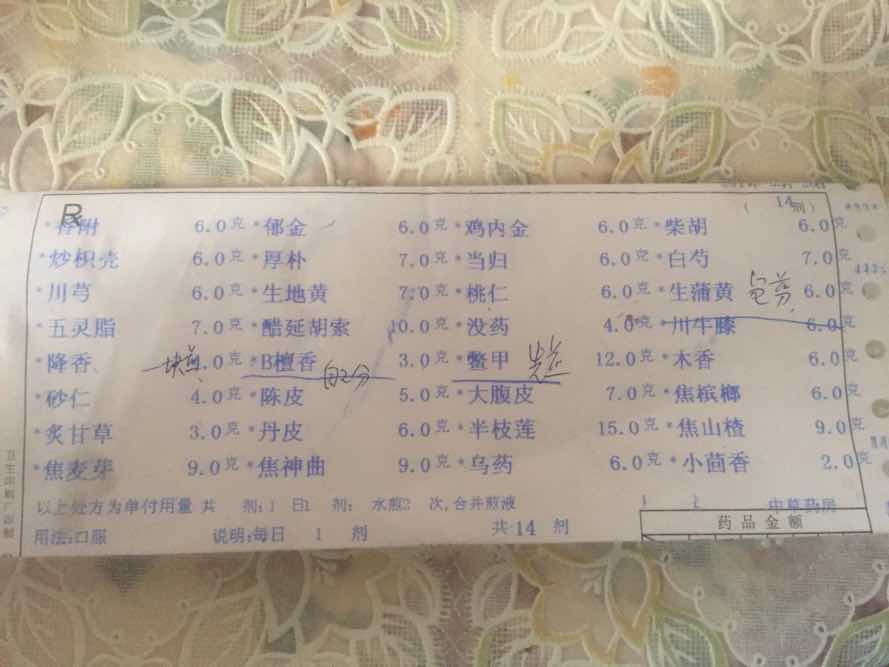 ℞ (14剂)
*香附 6.0克 *郁金 6.0克 *鸡内金 6.0克 *柴胡 6.0克
*炒枳壳 6.0克 *厚朴 7.0克 *当归 6.0克 *白芍 7.0克
*川芎 6.0克 *生地黄 7.0克 *桃仁 6.0克 *生蒲黄 包煎 6.0克
*五灵脂 7.0克 *醋延胡索 10.0克 *没药 4.0克 *川牛膝 6.0克
*降香 4.0克 *B檀香 3.0克 *鳖甲 先煎 12.0克 *木香 6.0克
*砂仁 4.0克 *陈皮 5.0克 *大腹皮 7.0克 *焦槟榔 6.0克
*炙甘草 3.0克 *丹皮 6.0克 *半枝莲 15.0克 *焦山楂 9.0克
*焦麦芽 9.0克 *焦神曲 9.0克 *乌药 6.0克 *小茴香 2.0克
以上处方为单付用量 共 剂:1 日1 剂: 水煎2 次,合并煎液 1 2 中草药房
用法:口服 说明:每日 1 剂 共14 剂 药品金额